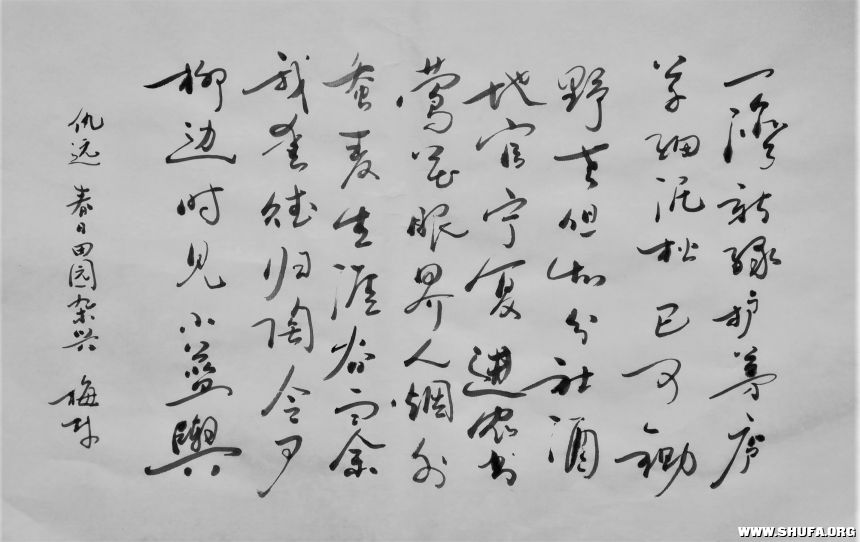 一湾新绿护茅庐
草细泥松已可锄
野老但知分社酒
地官宁复進农书
莺花眼界人烟外
蚕麦生涯谷雨余
我爱赋归陶令
柳边时见小蓝舆
仇远 春日田园杂兴 梅
WWW.SHUFA.ORG